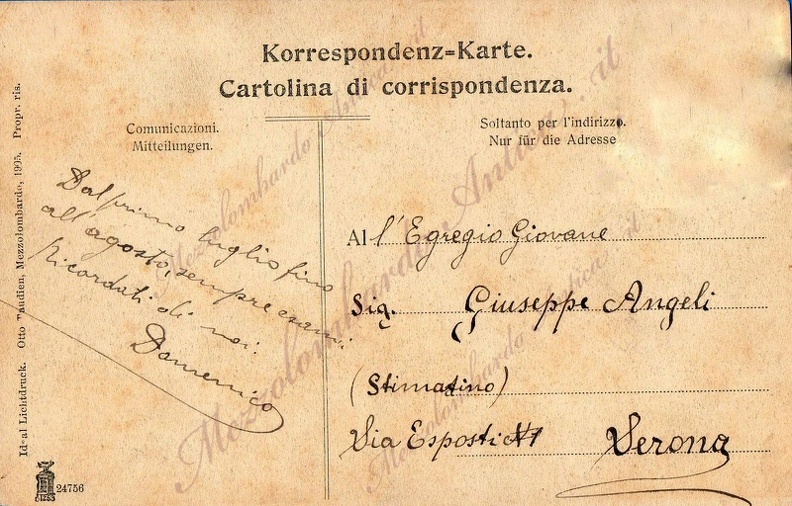 Korrespondenz=Karte.
Cartolina di corrispondenza.
Comunicazioni.
Mitteilungen.
Soltanto per l'indirizzo.
Nur für die Adresse
Dal primo luglio fino
all'agosto, sempre esami
Ricordati di noi.
Domenico
Al l'Egregio Giovane
Sig. Giuseppe Angeli
(Stimatino)
Via Esposti N1 Verona
Ideal Lichtdruck. Otto Taudien, Mezzolombardo, 1905. Propr. ris.
24756
Mezzolombardo Antica . it
Mezzolombardo Antica . it
Mezzolombardo Antica . it